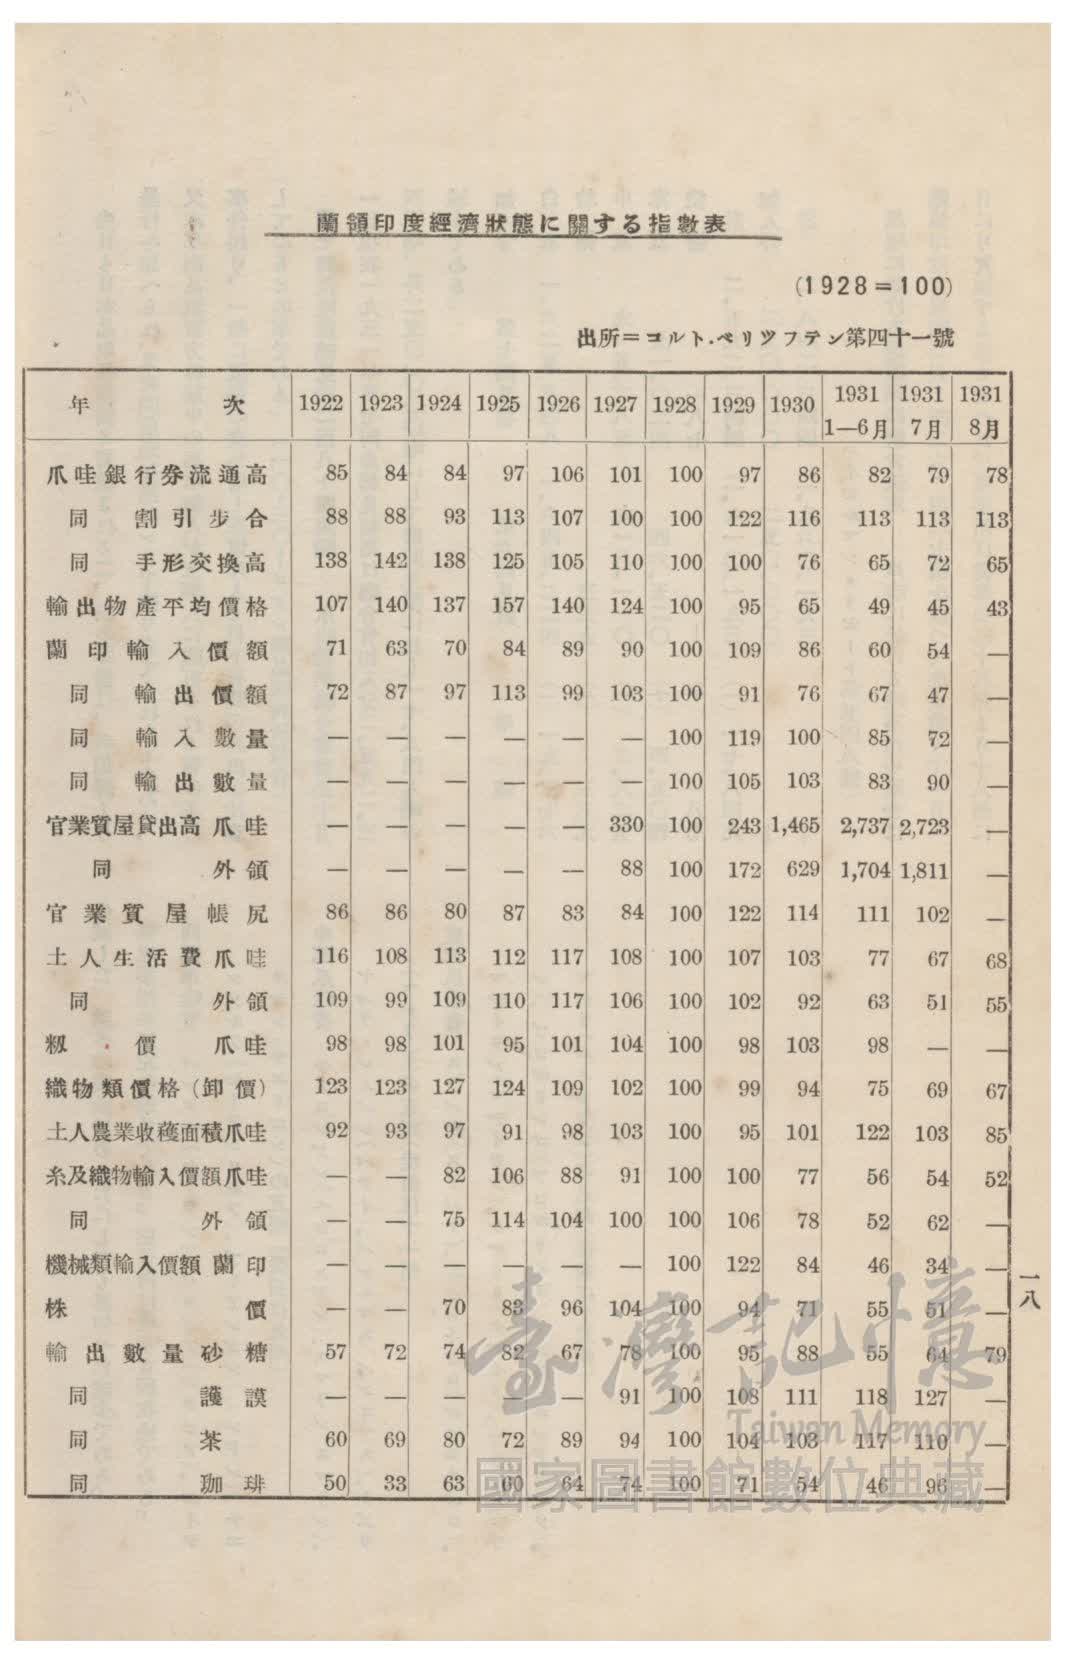 蘭領印度經濟狀態に關する指數表
(1928=100)
出所=コルト.ベリツフテン第四十一號
年次 1922 1923 1924 1925 1926 1927 1928 1929 1930 1931 1—6月 1931 7月 1931 8月
爪哇銀行券流通高 85 84 84 97 106 101 100 97 86 82 79 78
同 割引步合 88 88 93 113 107 100 100 122 116 113 113 113
同 手形交換高 138 142 138 125 105 110 100 100 76 65 72 65
輸出物產平均價格 107 140 137 157 140 124 100 95 65 49 45 43
蘭印輸入價額 71 63 70 84 89 90 100 109 86 60 54 —
同 輸出價額 72 87 97 113 99 103 100 91 76 67 47 —
同 輸入數量 — — — — — — 100 119 100 85 72 —
同 輸出數量 — — — — — — 100 105 103 83 90 —
官業質屋貸出高爪哇 — — — — — 330 100 243 1,465 2,737 2,723 —
同 外領 — — — — — 88 100 172 629 1,704 1,811 —
官業質屋帳尻 86 86 80 87 83 84 100 122 114 111 102 —
土人生活費爪哇 116 108 113 112 117 108 100 107 103 77 67 68
同 外領 109 99 109 110 117 106 100 102 92 63 51 55
籾價 爪哇 98 98 101 95 101 104 100 98 103 98 — —
織物類價格(卸價) 123 123 127 124 109 102 100 99 94 75 69 67
土人農業收穫面積爪哇 92 93 97 91 98 103 100 95 101 122 103 85
糸及織物輸入價額爪哇 — — 82 106 88 91 100 100 77 56 54 52
同 外領 — — 75 114 104 100 100 106 78 52 62 —
機械類輸入價額蘭印 — — — — — — 100 122 84 46 34 —
株價 — — 70 83 96 104 100 94 71 55 51 —
輸出數量砂糖 57 72 74 82 67 78 100 95 88 55 64 79
同 護謨 — — — — — 91 100 108 111 118 127 —
同 茶 60 69 80 72 89 94 100 104 103 117 110 —
同 珈琲 50 33 63 60 64 74 100 71 54 46 96 —
一八
臺灣記憶
Taiwan Memory
國家圖書館數位典藏